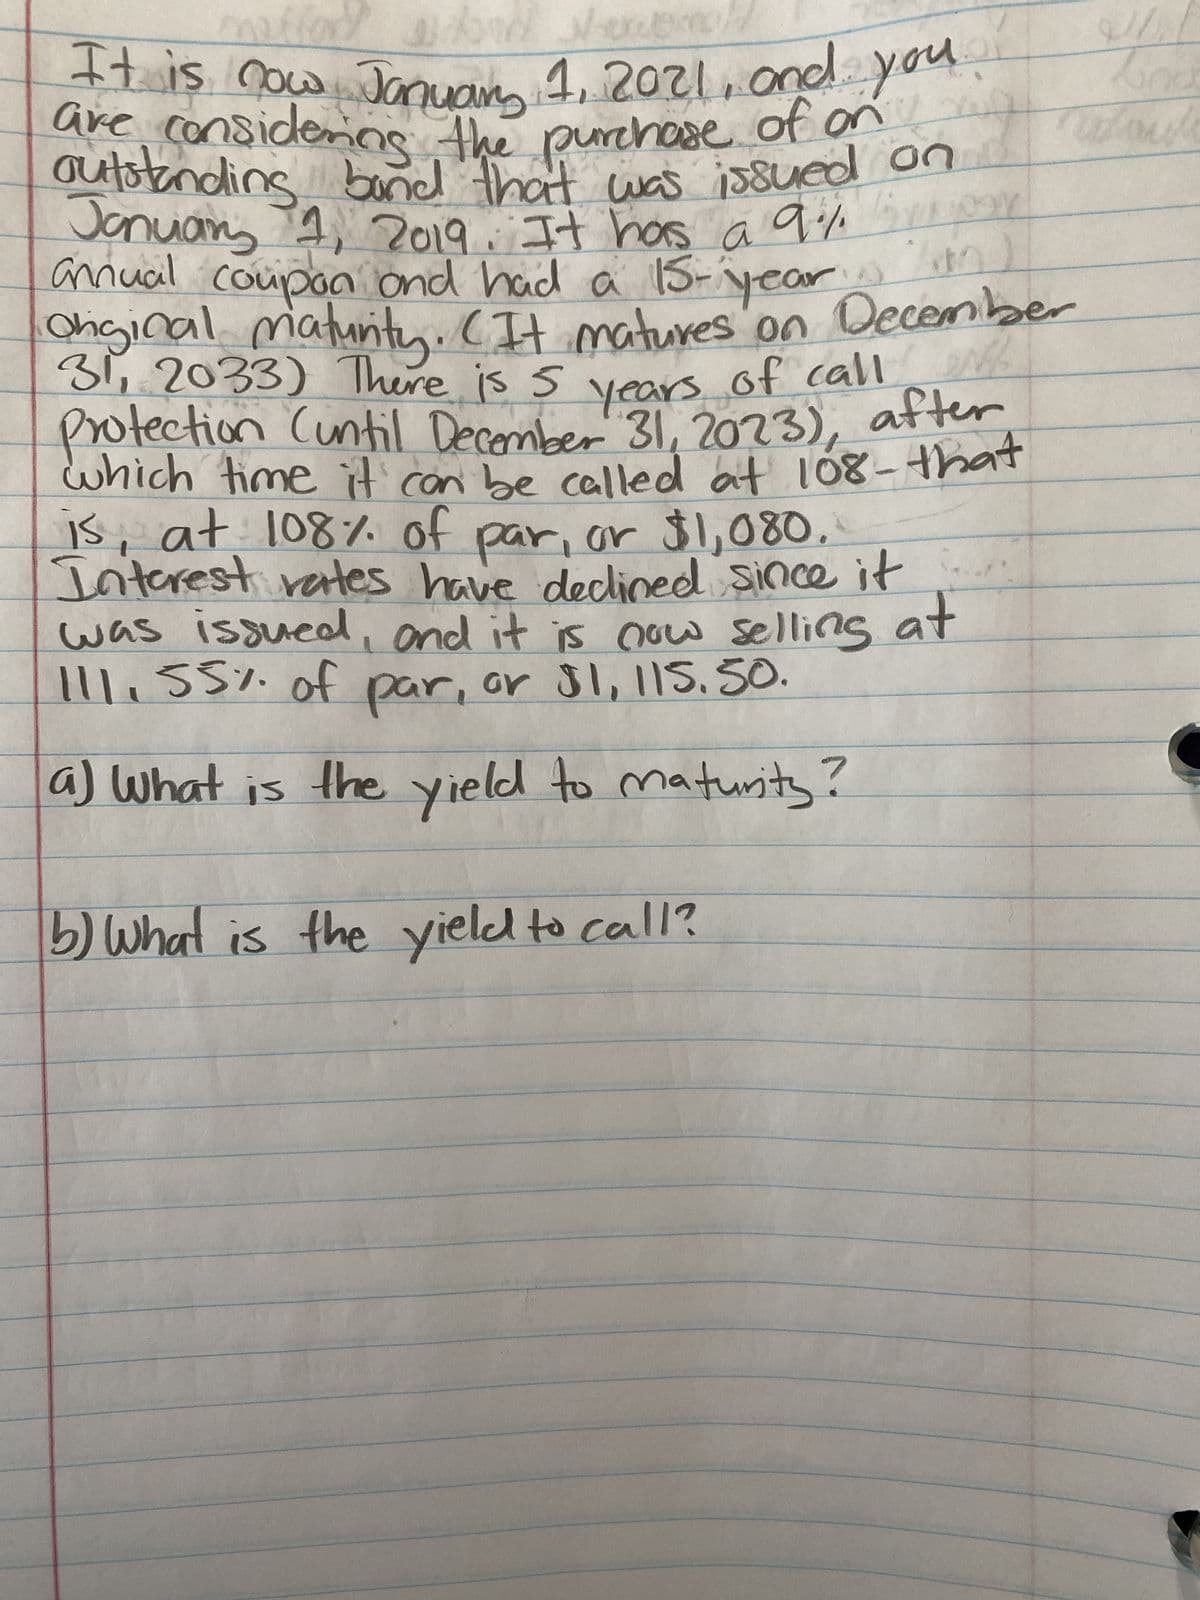 It is now January 1, 2021, and you
are considering the purchase of an
outstanding bond that was issued on
January 1, 2019. It has a 9%
annual coupon and had a 15-year
original maturity. (It matures on December
31, 2033) There is 5 years of call
protection (until December 31, 2023), after
which time it can be called at 108-that
is, at 108% of par, or $1,080.
Interest rates have declined since it
was issued, and it is now selling at
111.55% of par, or $1,115.50.
a) What is the yield to maturity?
b) What is the yield to call?